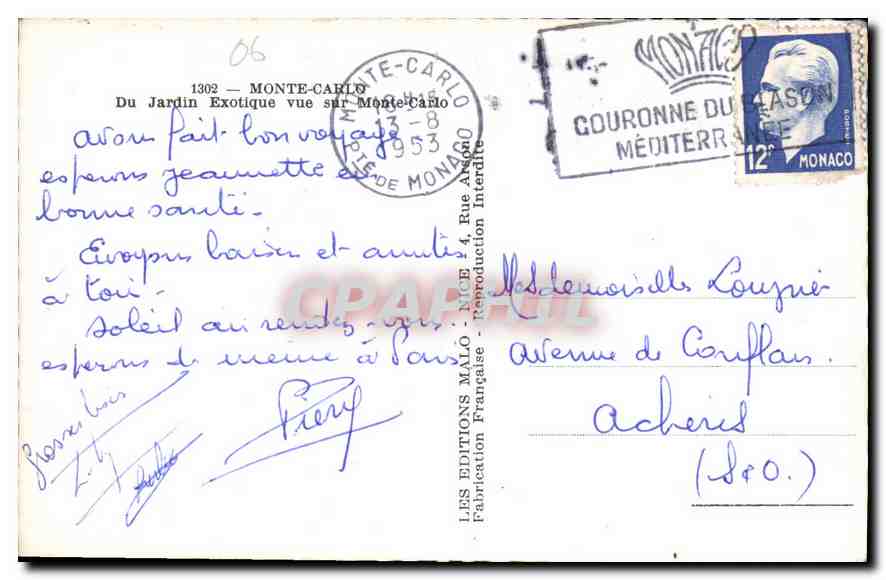 06
1302 — MONTE-CARLO
Du Jardin Exotique vue sur Monte-Carlo
avons fait bon voyage
esperons Jeannette en
bonne santé.
Envoyons baisers et amitiés
à toi.
Soleil au rendez-vous.
esperons de meme à Paris
Grosses bises
Pierry
MONTE-CARLO
13-8
1953
PTÉ DE MONACO
MONACO
COURONNE DU BLASON
MÉDITERRANÉE
12F
MONACO
LES EDITIONS MALO - NICE - 4, Rue Arson
Fabrication Française - Reproduction Interdite
Mesdemoiselles
Avenue de Conflans.
Achères
(S & O.)
CPAPHIL